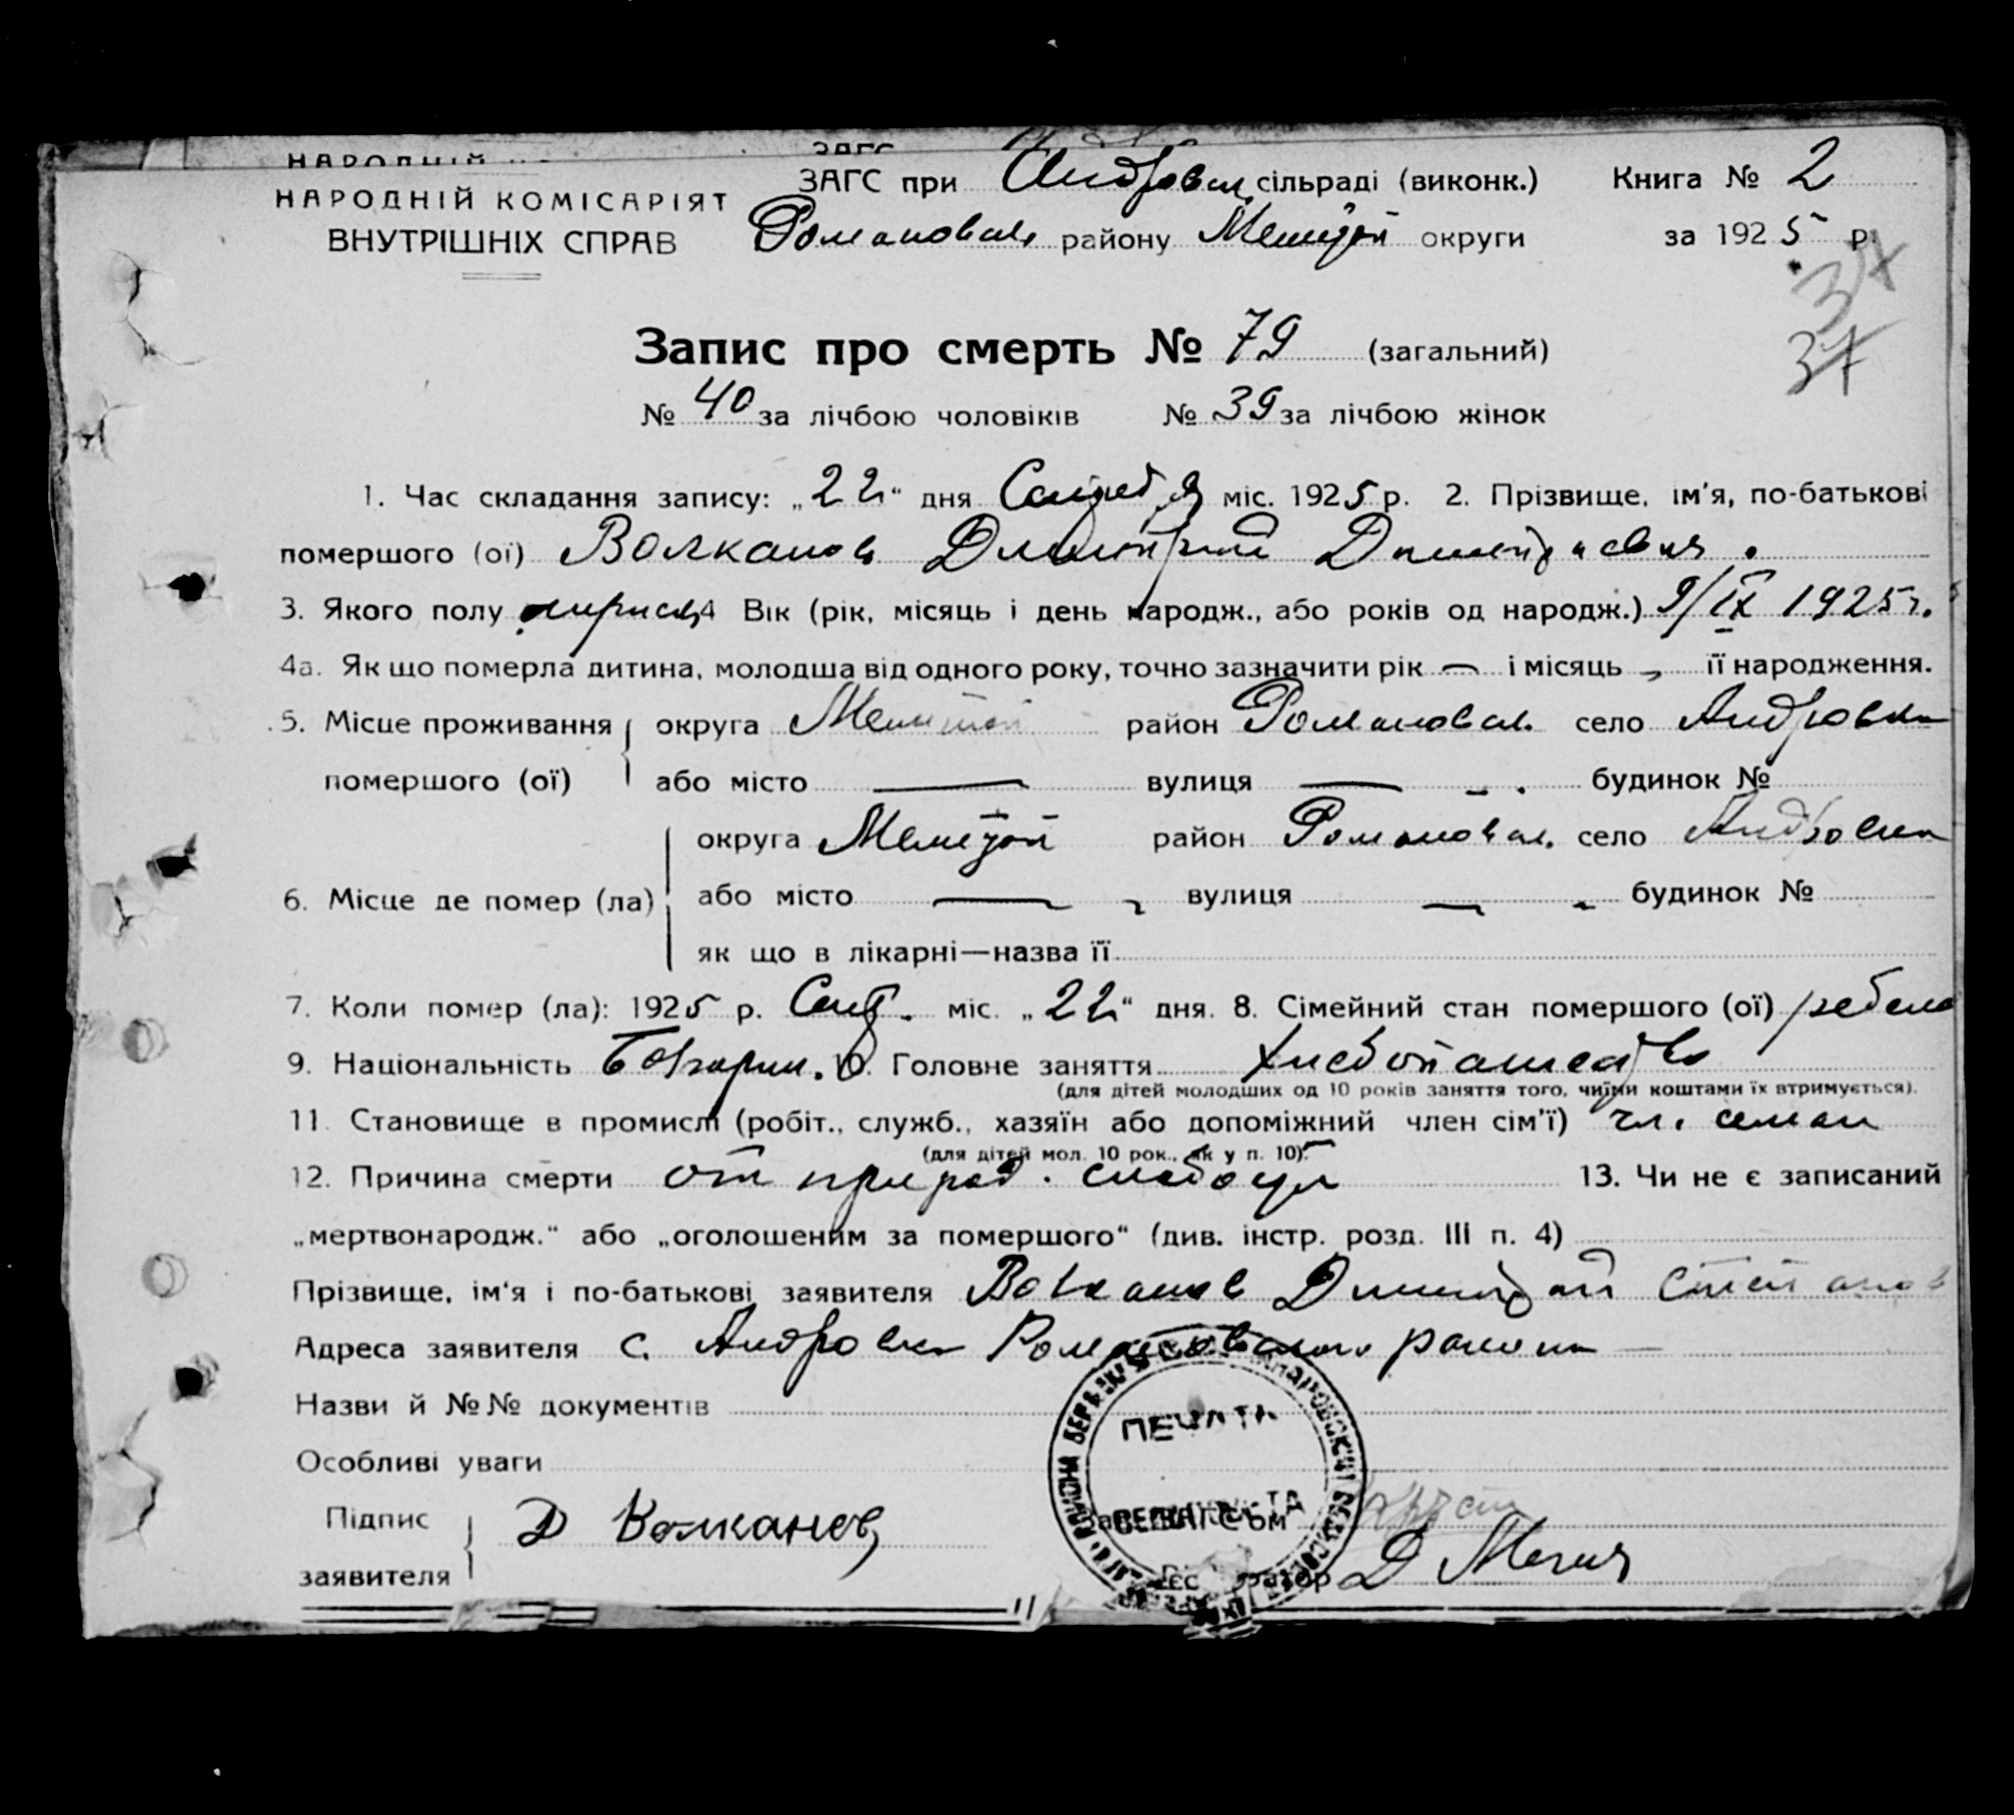 НАРОДНІЙ КОМІСАРІЯТ
ВНУТРІШНІХ СПРАВ
ЗАГС при Андровск сільраді (виконк.) Книга № 2
Романовск. району Мелитой округи за 1925 р.
37
37
Запис про смерть № 79 (загальний)
№ 40 за лічбою чоловіків № 39 за лічбою жінок
1. Час складання запису: „22“ дня міс. 1925 р. 2. Прізвище, ім'я, по-батькові
помершого (ої) Волканов Димитрий Димитриевич.
3. Якого полу 4 Вік (рік, місяць і день народж., або років од народж.) 9/IX 1925 г.
4а. Як що померла дитина, молодша від одного року, точно зазначити рік — і місяць її народження.
5. Місце проживання округа район Романовск. село Андровка
помершого (ої) або місто — вулиця — будинок №
округа Мелитой район Романовск. село Андровка
6. Місце де помер (ла) або місто — вулиця — будинок №
як що в лікарні—назва її
7. Коли помер (ла): 1925 р. Сент. міс. „22“ дня. 8. Сімейний стан помершого (ої)
9. Національність Болгарин. 10. Головне заняття Хлебопашество
(для дітей молодших од 10 років заняття того, чиїми коштами їх втримується).
11. Становище в промислі (робіт., служб., хазяїн або допоміжний член сім'ї) чл. семьи
(для дітей мол. 10 рок., як у п. 10).
12. Причина смерти от природ. слабости 13. Чи не є записаний
„мертвонародж.“ або „оголошеним за помершого“ (див. інстр. розд. III п. 4)
Прізвище, ім'я і по-батькові заявителя Волканов Димитрий Степанов
Адреса заявителя с. Андровка Романовского района
Назви й №№ документів
Особливі уваги
ПЕЧАТА
Підпис Д Волканов
заявителя Д